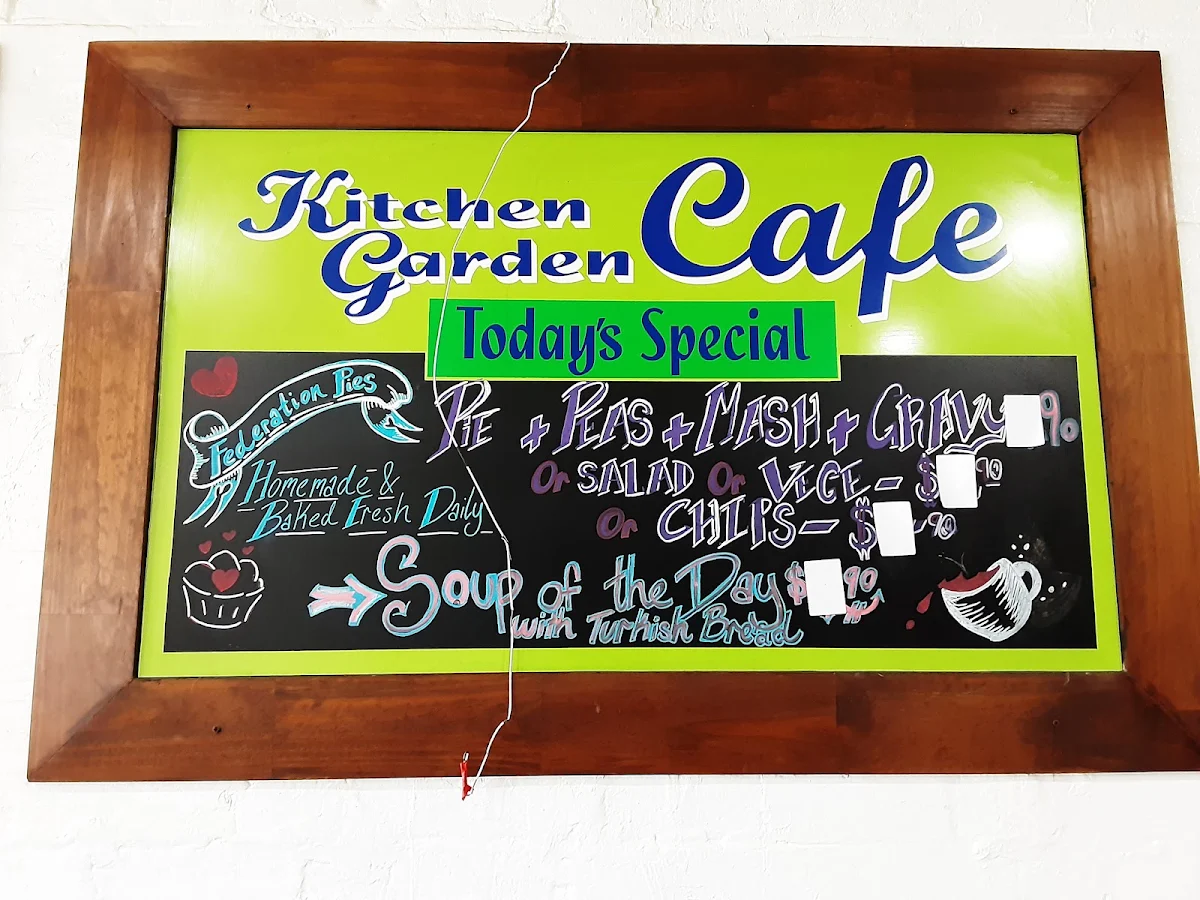 Kitchen
Garden
Cafe
Today's Special
Federation Pies
Homemade &
Baked Fresh Daily
PIE + PEAS + MASH + GRAVY 90
Or SALAD Or VEGE - $ 90
Or CHIPS - $ -90
Soup of the Day $ 90
with Turkish Bread